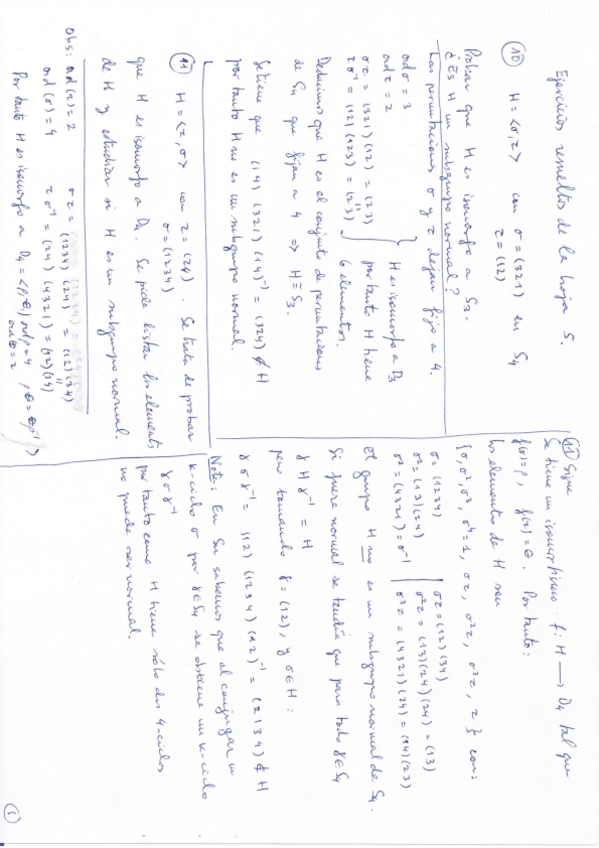 Ejercicios resueltos de la hoja 5.
(10) H = <σ,τ> con σ = (321) en S₄
τ = (12)
Probar que H es isomorfo a S₃.
¿Es H un subgrupo normal?
Las permutaciones σ y τ dejan fijo a 4.
ord σ = 3
ord τ = 2
στ = (321)(12) = (23)
τσ⁻¹ = (12)(123) = (23)
H es isomorfo a D₃
por tanto H tiene
6 elementos.
Deducimos que H es el conjunto de permutaciones
de S₄ que fijan a 4 => H ≅ S₃.
Se tiene que (14)(321)(14)⁻¹ = (324) ∉ H
por tanto H no es un subgrupo normal.
(11) H = <τ,σ> con τ = (24). Se trata de probar
σ = (1234)
que H es isomorfo a D₄. Se pide listar los elementos
de H y estudiar si H es un subgrupo normal.
Obs: ord(τ) = 2
στ = (1234)(24) = (12)(34)
ord(σ) = 4 τσ⁻¹ = (24)(4321) = (12)(34)
Por tanto H es isomorfo a D₄ = <ρ,θ | ordρ = 4, ρθ = θρ⁻¹>
ordθ = 2
(11) Sigue
Se tiene un isomorfismo f: H → D₄ tal que
f(σ) = ρ, f(τ) = θ. Por tanto:
los elementos de H son
{σ, σ², σ³, σ⁴ = 1, στ, σ²τ, σ³τ, τ} con:
σ = (1234) στ = (12)(34)
σ² = (13)(24) σ²τ = (13)(24)(24) = (13)
σ³ = (4321) = σ⁻¹ σ³τ = (4321)(24) = (14)(23)
El grupo H no es un subgrupo normal de S₄.
Si fuere normal se tendría que para todo γ∈S₄
γHγ⁻¹ = H
pero tomando γ = (12), y σ∈H:
γσγ⁻¹ = (12)(1234)(12)⁻¹ = (2134) ∉ H
Nota: En Sn sabemos que al conjugar un
k-ciclo σ por γ∈S₄ se obtiene un k-ciclo
γσγ⁻¹
por tanto como H tiene sólo dos 4-ciclos
no puede ser normal.
(1)